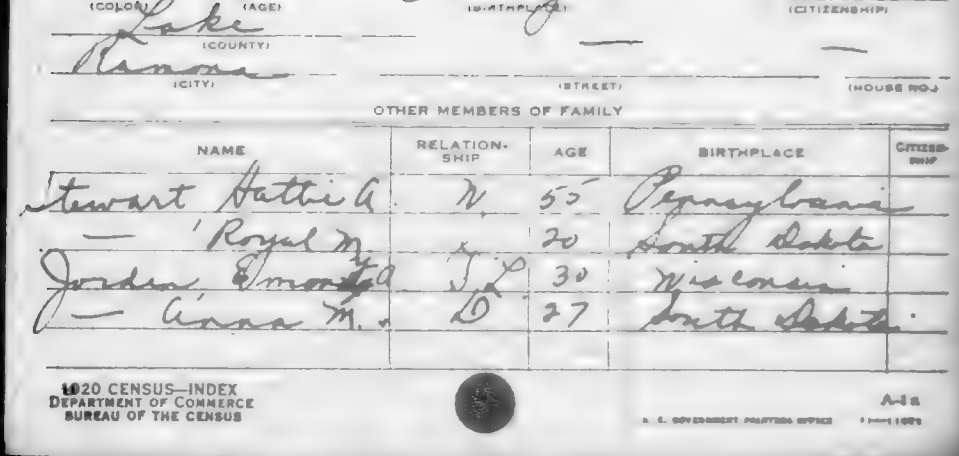 (COLOR) (AGE) (BIRTHPLACE) (CITIZENSHIP)
Lake
(COUNTY)
Ramona — —
(CITY) (STREET) (HOUSE NO.)
OTHER MEMBERS OF FAMILY
NAME RELATION-SHIP AGE BIRTHPLACE CITIZEN-SHIP
Stewart Hattie A W 55 Pennsylvania
— Royal M 20 South Dakota
Jorden A S L 30 Wisconsin
— Anna M. D 27 South Dakota
1920 CENSUS—INDEX
DEPARTMENT OF COMMERCE
BUREAU OF THE CENSUS
A-1a
U. S. GOVERNMENT PRINTING OFFICE